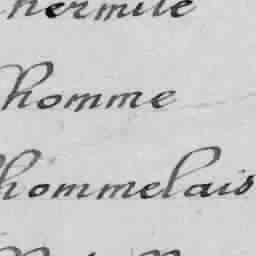 hermite
homme
hommelais